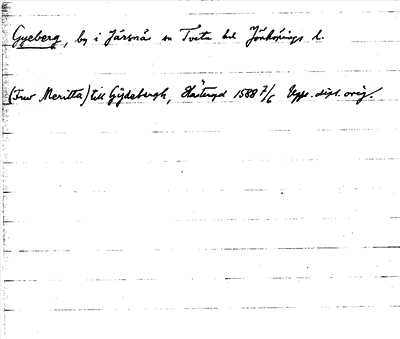 Gyeberg, by i Järsnäs sn Tveta hd Jönköpings l.
(Fru Meritta) till Gijdebergh, 1588 7/6 Upps. dipl. orig.